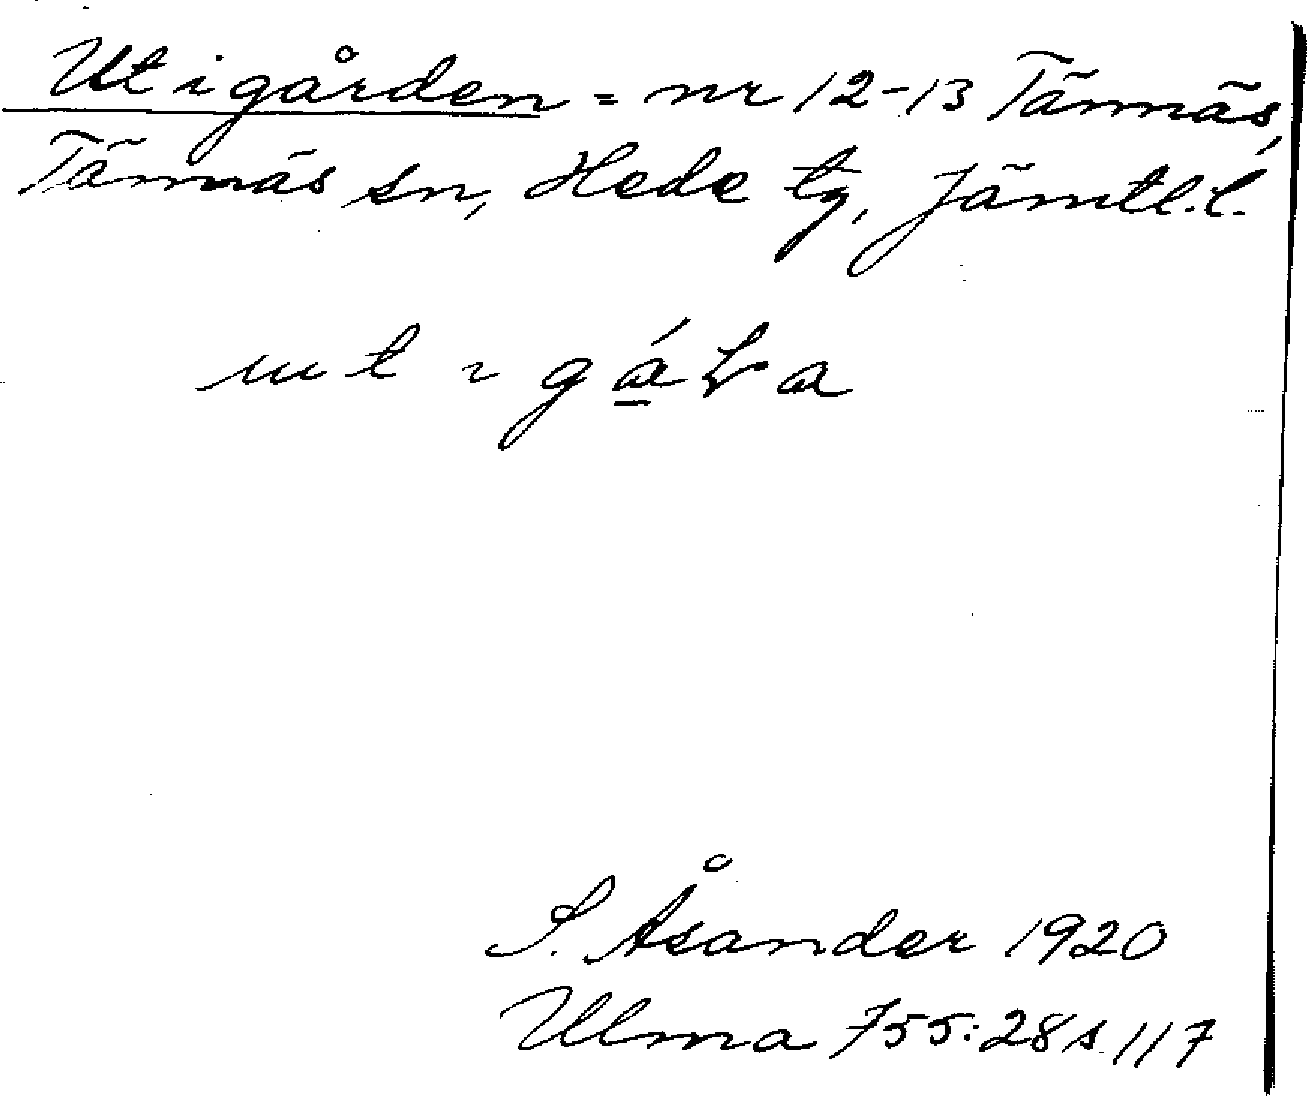 Utigården = nr 12-13 Tännäs,
Tännäs sn, Hede tg, Jämtl.l.
S. Åsander 1920
Ulma 755:28 s. 117